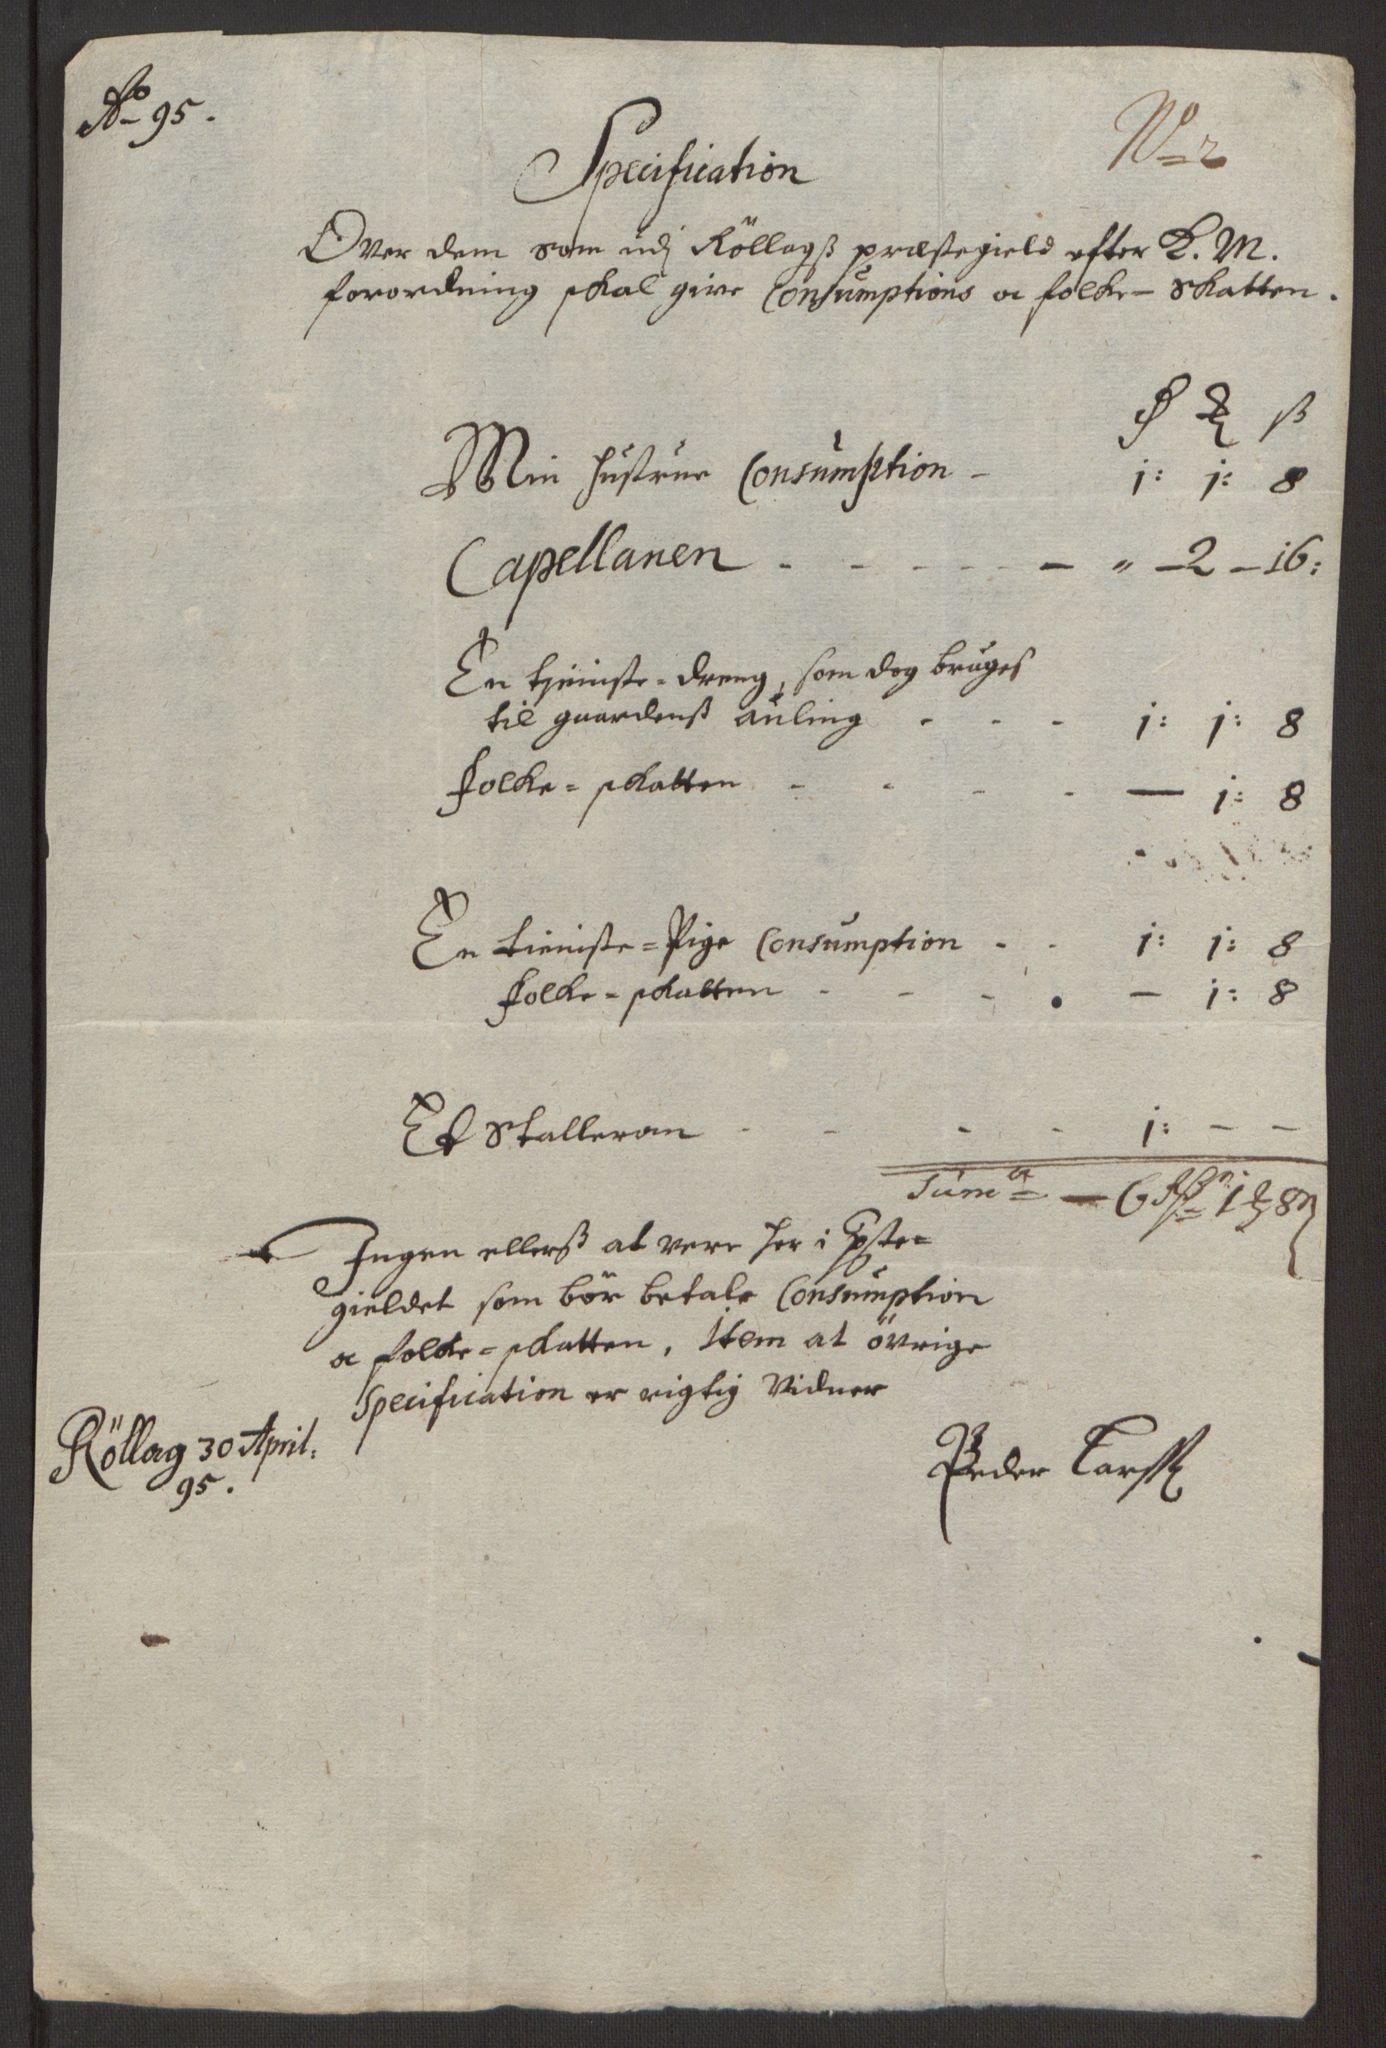 Ao 95.
No 2
Specification
Over dem som udj Röllagß præstegield efter K. M.
forordning skal give Consumptions oc folke-skatten.
ß
Min hustrue Consumption - 1: 1: 8
Capellanen - - - - - - " - 2 - 16:
En tjeniste-dreng, som dog bruges
til gaardenß auling - - - 1: 1: 8
folke-skatten - - - - — 1: 8
En tieniste-Pige Consumption - - 1: 1: 8
folke-skatten - - - - 1: 8
Et Stallerom - - - - 1: - -
Suma - 6 1 8
Ingen ellerß at vere her i Pste-
gieldet som bör betale Consumption
oc folke-skatten, Item at övrige
Specification er rigtig Vidner
Röllag 30 April:
95.
Peder Larß